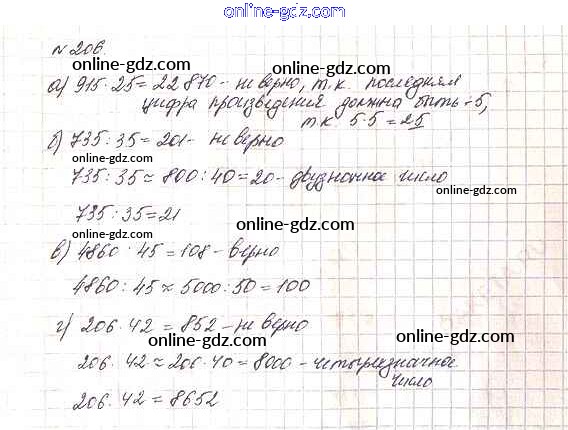 online-gdz.com
№206.
online-gdz.com
а) 915·25=22870- не верно, т.к. последняя
цифра произведения должна быть -5,
т.к. 5·5=25
online-gdz.com
б) 735:35=201- не верно
online-gdz.com
735:35≈800:40=20- двузначное число
online-gdz.com
735:35=21
online-gdz.com
online-gdz.com
в) 4860:45=108-верно
4860:45≈5000:50=100
online-gdz.com
г) 206·42=852-не верно
online-gdz.com
206·42≈206·40=8000-четырехзначное
число
online-gdz.com
206·42=8652
online-gdz.com